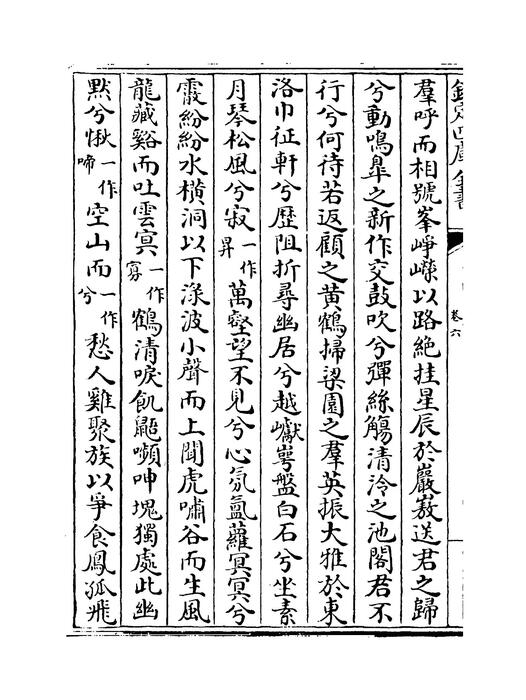 欽定四庫全書
卷六
羣呼而相號峯崢嶸以路絶挂星辰於巖嶅送君之歸
兮動鳴臯之新作交鼓吹兮彈絲觴清泠之池閣君不
行兮何待若返顧之黄鶴掃梁園之羣英振大雅於東
洛巾征軒兮歴阻折尋幽居兮越巘崿盤白石兮坐素
月琴松風兮寂一作昇萬壑望不見兮心氛氲蘿冥冥兮
霰紛紛水横洞以下渌波小聲而上聞虎嘯谷而生風
龍藏谿而吐雲寞一作寡鶴清唳飢鼯嚬呻塊獨處此幽
默兮愀一作啼空山而一作兮愁人雞聚族以爭食鳳孤飛